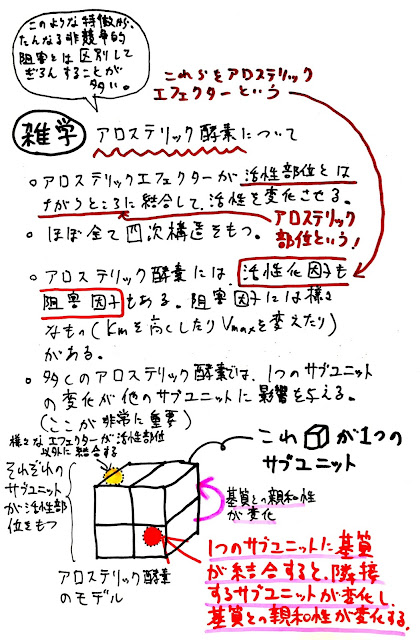 このような特徴が、
たんなる非競争的
阻害とは区別して
ぎろんすることが
多い。
これらをアロステリック
エフェクターという
雑学 アロステリック酵素について
○アロステリックエフェクターが活性部位とは
ちがうところに結合して、活性を変化させる。
アロステリック
部位という!
○ほぼ全て四次構造をもつ。
○アロステリック酵素には、活性化因子も
阻害因子もある。阻害因子には様々
なもの(Kmを高くしたりVmaxを変えたり)
がある。
○多くのアロステリック酵素では、1つのサブユニット
の変化が他のサブユニットに影響を与える。
(ここが非常に重要)
様々なエフェクターが活性部位
以外に結合する
これ が1つの
サブユニット
それぞれの
サブユニット
が活性部
位をもつ
基質との親和性
が変化
アロステリック酵素
のモデル
1つのサブユニットに基質
が結合すると、隣接
するサブユニットが変化し、
基質との親和性が変化する。